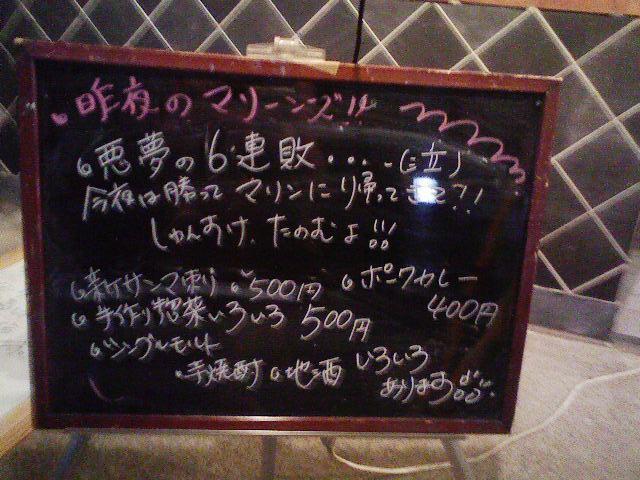 昨夜のマリーンズ!!
悪夢の6連敗・・・-(泣)
今夜は勝ってマリンに帰って!!
しゅんすけ、たのむよ!!
新サンマ刺り 500円
ポークカレー
400円
手作り惣菜いろいろ 500円
シングルモルト
芋焼酎 地酒 いろいろ
あります!!